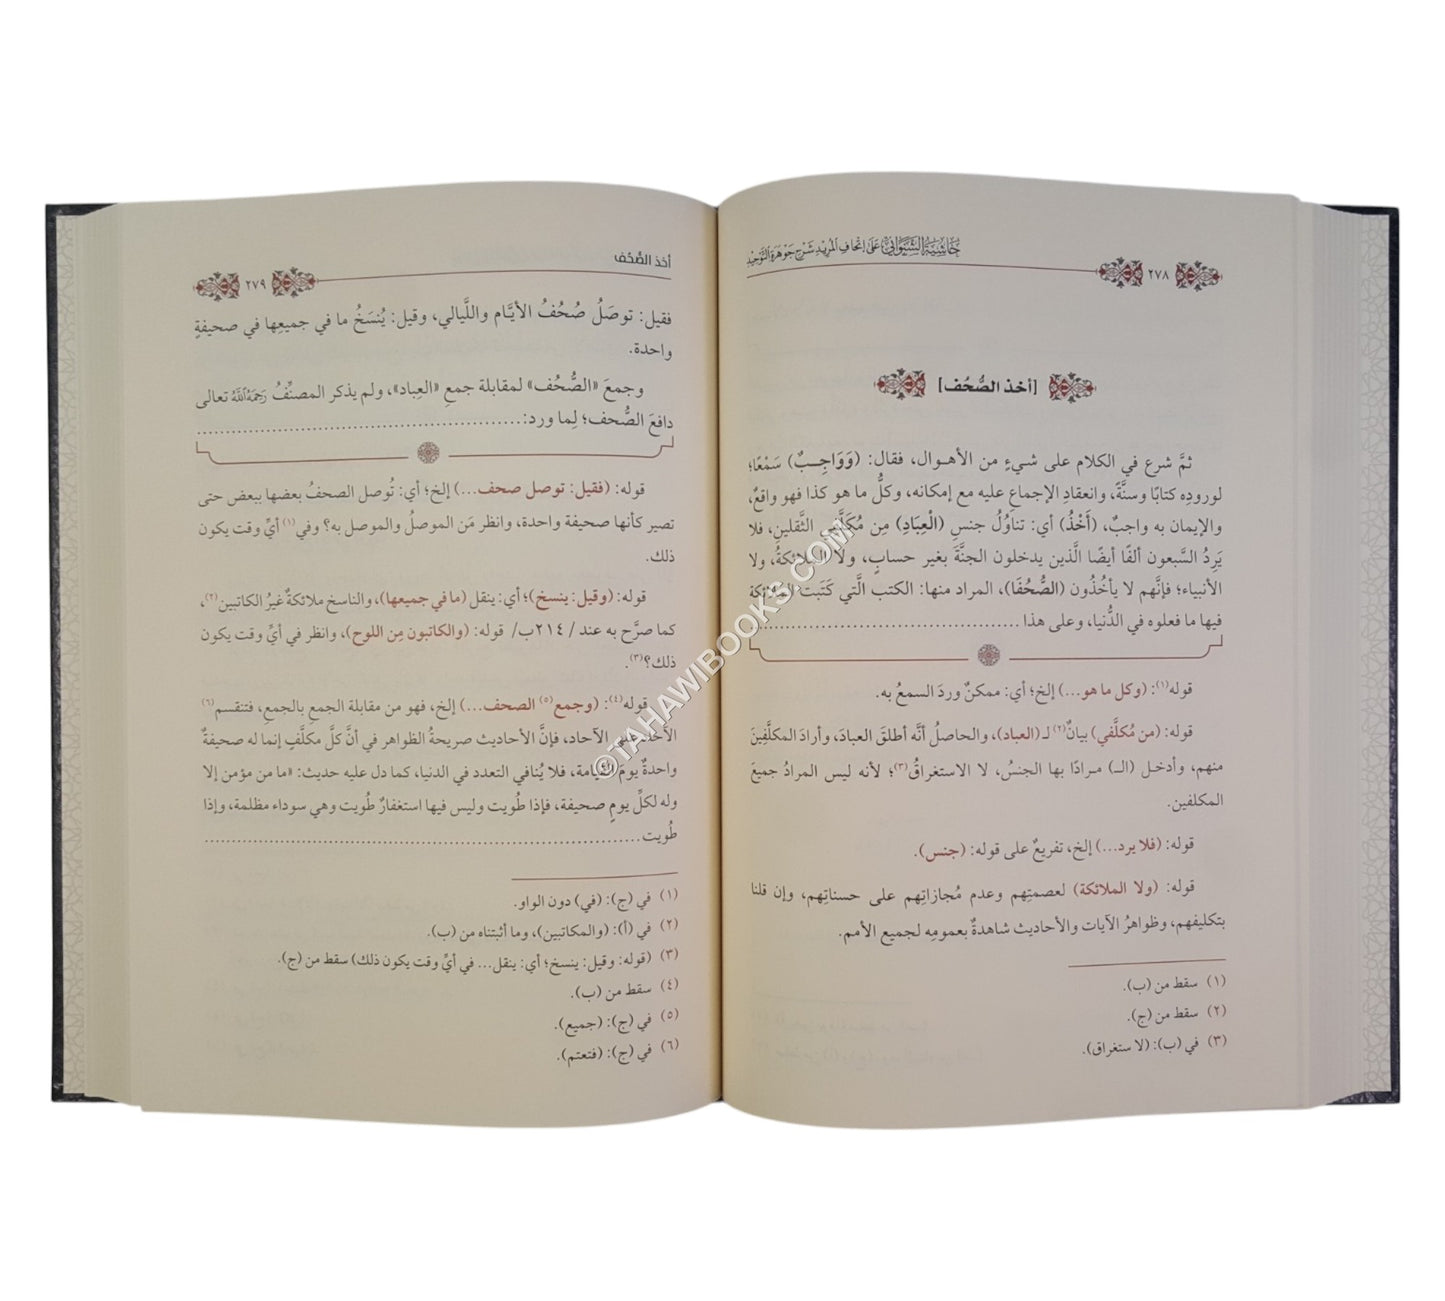 حَاشِيَةُ الشَّنَوَانِيِّ عَلَى إِتْحَافِ المُرِيْدِ شَرْحِ جَوْهَرَةِ التَّوْحِيْدِ
٢٧٨
[أخذ الصُّحُف]
ثمَّ شرع في الكلام على شيءٍ من الأهـوال، فقال: (وَوَاجِـبٌ) سَمْعًا؛
لورودِه كتابًا وسنَّةً، وانعقادِ الإجماعِ عليه مع إمكانه، وكلُّ ما هو كذا فهو واقعٌ،
والإيمان به واجبٌ، (أَخْذُ) أي: تناوُلُ جنسِ (الْعِبَادِ) مِن مُكَلَّفي الثَّقلينِ، فلا
يَرِدُ السَّبعون ألفًا أيضًا الَّذين يدخلون الجنَّةَ بغير حسابٍ، ولا الملائكةُ، ولا
الأنبياء؛ فإنَّهم لا يأخُذُون (الصُّحُفَا)، المراد منها: الكتب الَّتي كَتَبَت الملائكة
فيها ما فعلوه في الدُّنيا، وعلى هذا ..........................................
قوله(١): (وكل ما هو...) إلخ؛ أي: ممكنٌ وردَ السمعُ به.
قوله: (من مُكلَّفي) بيانٌ(٢) لـ (العباد)، والحاصلُ أنَّه أطلقَ العبادَ، وأرادَ المكلَّفِينَ
منهم، وأدخـل (الـ) مـرادًا بها الجنسُ، لا الاستغراقُ(٣)؛ لأنه ليس المرادُ جميعَ
المكلفين.
قوله: (فلا يرد...) إلخ، تفريعٌ على قوله: (جنس).
قوله: (ولا الملائكة) لعصمتِهم وعدم مُجازاتِهم على حسناتِهم، وإن قلنا
بتكليفهم، وظواهرُ الآيات والأحاديث شاهدةٌ بعمومِه لجميع الأمم.
(١) سقط من (ب).
(٢) سقط من (ج).
(٣) في (ب): (لا ستغراق).
أخذ الصُّحُف
٢٧٩
فقيل: توصَلُ صُحُفُ الأيَّام واللَّيالي، وقيل: يُنسَخُ ما في جميعِها في صحيفةٍ
واحدة.
وجمعَ «الصُّحُف» لمقابلة جمعِ «العِباد»، ولم يذكر المصنِّفُ رَحِمَهُ اللَّهُ تعالى
دافعَ الصُّحف؛ لِما ورد:..................................................
قوله: (فقيل: توصل صحف...) إلخ؛ أي: تُوصل الصحفُ بعضها ببعض حتى
تصير كأنها صحيفة واحدة، وانظر مَن الموصلُ والموصل به؟ وفي(١) أيِّ وقت يكون
ذلك.
قوله: (وقيل: ينسخ)؛ أي: ينقل (ما في جميعها)، والناسخ ملائكةٌ غيرُ الكاتبين(٢)،
كما صرَّح به عند /٢١٤ب/ قوله: (والكاتبون مِن اللوح)، وانظر في أيِّ وقت يكون
ذلك؟(٣).
قوله(٤): (وجمع(٥) الصحف...) إلخ، فهو من مقابلة الجمعِ بالجمع، فتنقسم(٦)
الآحاد على الآحاد، فإنَّ الأحاديث صريحةُ الظواهر في أنَّ كلَّ مكلَّفٍ إنما له صحيفةٌ
واحدةٌ يومَ القيامة، فلا يُنافي التعدد في الدنيا، كما دل عليه حديث: «ما من مؤمن إلا
وله لكلِّ يومٍ صحيفة، فإذا طُويت وليس فيها استغفارٌ طُويت وهي سوداء مظلمة، وإذا
طُويت........................................................................
(١) في (ج): (في) دون الواو.
(٢) في (أ): (والمكاتبين)، وما أثبتناه من (ب).
(٣) (قوله: وقيل: ينسخ؛ أي: ينقل... في أيِّ وقت يكون ذلك) سقط من (ج).
(٤) سقط من (ب).
(٥) في (ج): (جميع).
(٦) في (ج): (فتعتم).
©TAHAWIBOOKS.COM